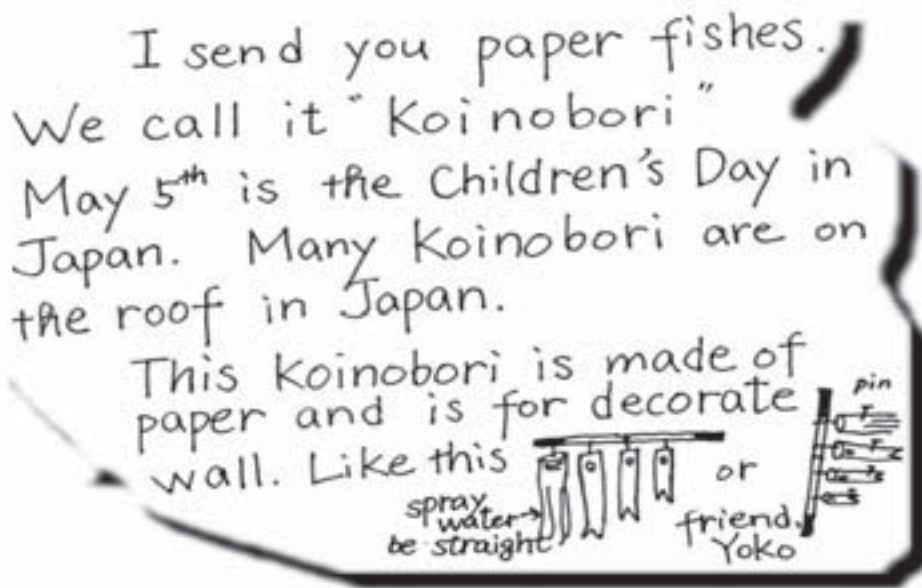 I send you paper fishes.
We call it "Koinobori"
May 5th is the Children's Day in
Japan. Many Koinobori are on
the roof in Japan.
This Koinobori is made of
paper and is for decorate
wall. Like this
or
pin
spray
water→
be straight
friend,
Yoko